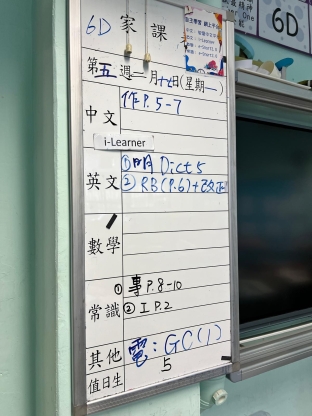 6D 家課
第五週一月十七日(星期一)
中文 作P.5-7
i-Learner
英文 ①明 Dict 5
② RB(P.6)+改正
數學
常識 ①專P.8-10
② I P.2
其他 電：GC(1)
值日生 5
6D